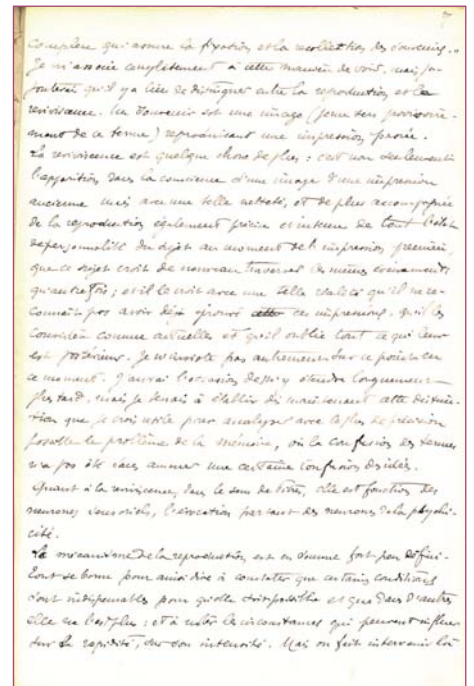 7
complexe qui assure la fixation et la recollection des souvenirs."
Je m'associe complètement à cette manière de voir, mais j'a-
jouterai qu'il y a lieu de distinguer entre la reproduction et la
reviviscence. Un souvenir est une image (je me sers provisoire-
ment de ce terme) reproduisant une impression passée.
La reviviscence est quelque chose de plus : c'est non seulement
l'apparition dans la conscience d'une image d'une impression
ancienne mais avec une telle netteté, et de plus accompagnée
de la reproduction également précise et intense de tout l'état
de personnalité du sujet au moment de l'impression première,
que ce sujet croit de nouveau traverser les mêmes événements
qu'autrefois ; et il le croit avec une telle réalité qu'il ne re-
connaît pas avoir déjà éprouvé ces impressions, qu'il les
considère comme actuelles et qu'il oublie tout ce qui leur
est postérieur. Je n'insiste pas autrement sur ce point en
ce moment. J'aurai l'occasion de m'y étendre longuement
plus tard, mais je tenais à établir dès maintenant cette distinc-
tion que je crois utile pour analyser avec le plus de précision
possible le problème de la mémoire, où la confusion des termes
n'a pas été sans amener une certaine confusion des idées.
Quant à la reviviscence, dans le sens de elle est fonction des
neurones sensoriels, l'évocation partant des neurones de la psychi-
cité.
Le mécanisme de la reproduction est en somme fort peu défini.
On se borne pour ainsi dire à constater que certaines conditions
sont indispensables pour qu'elle soit possible et que dans d'autres
elle ne l'est plus ; et à noter les circonstances qui peuvent influer
sur la rapidité, sur son intensité. Mais on fait intervenir